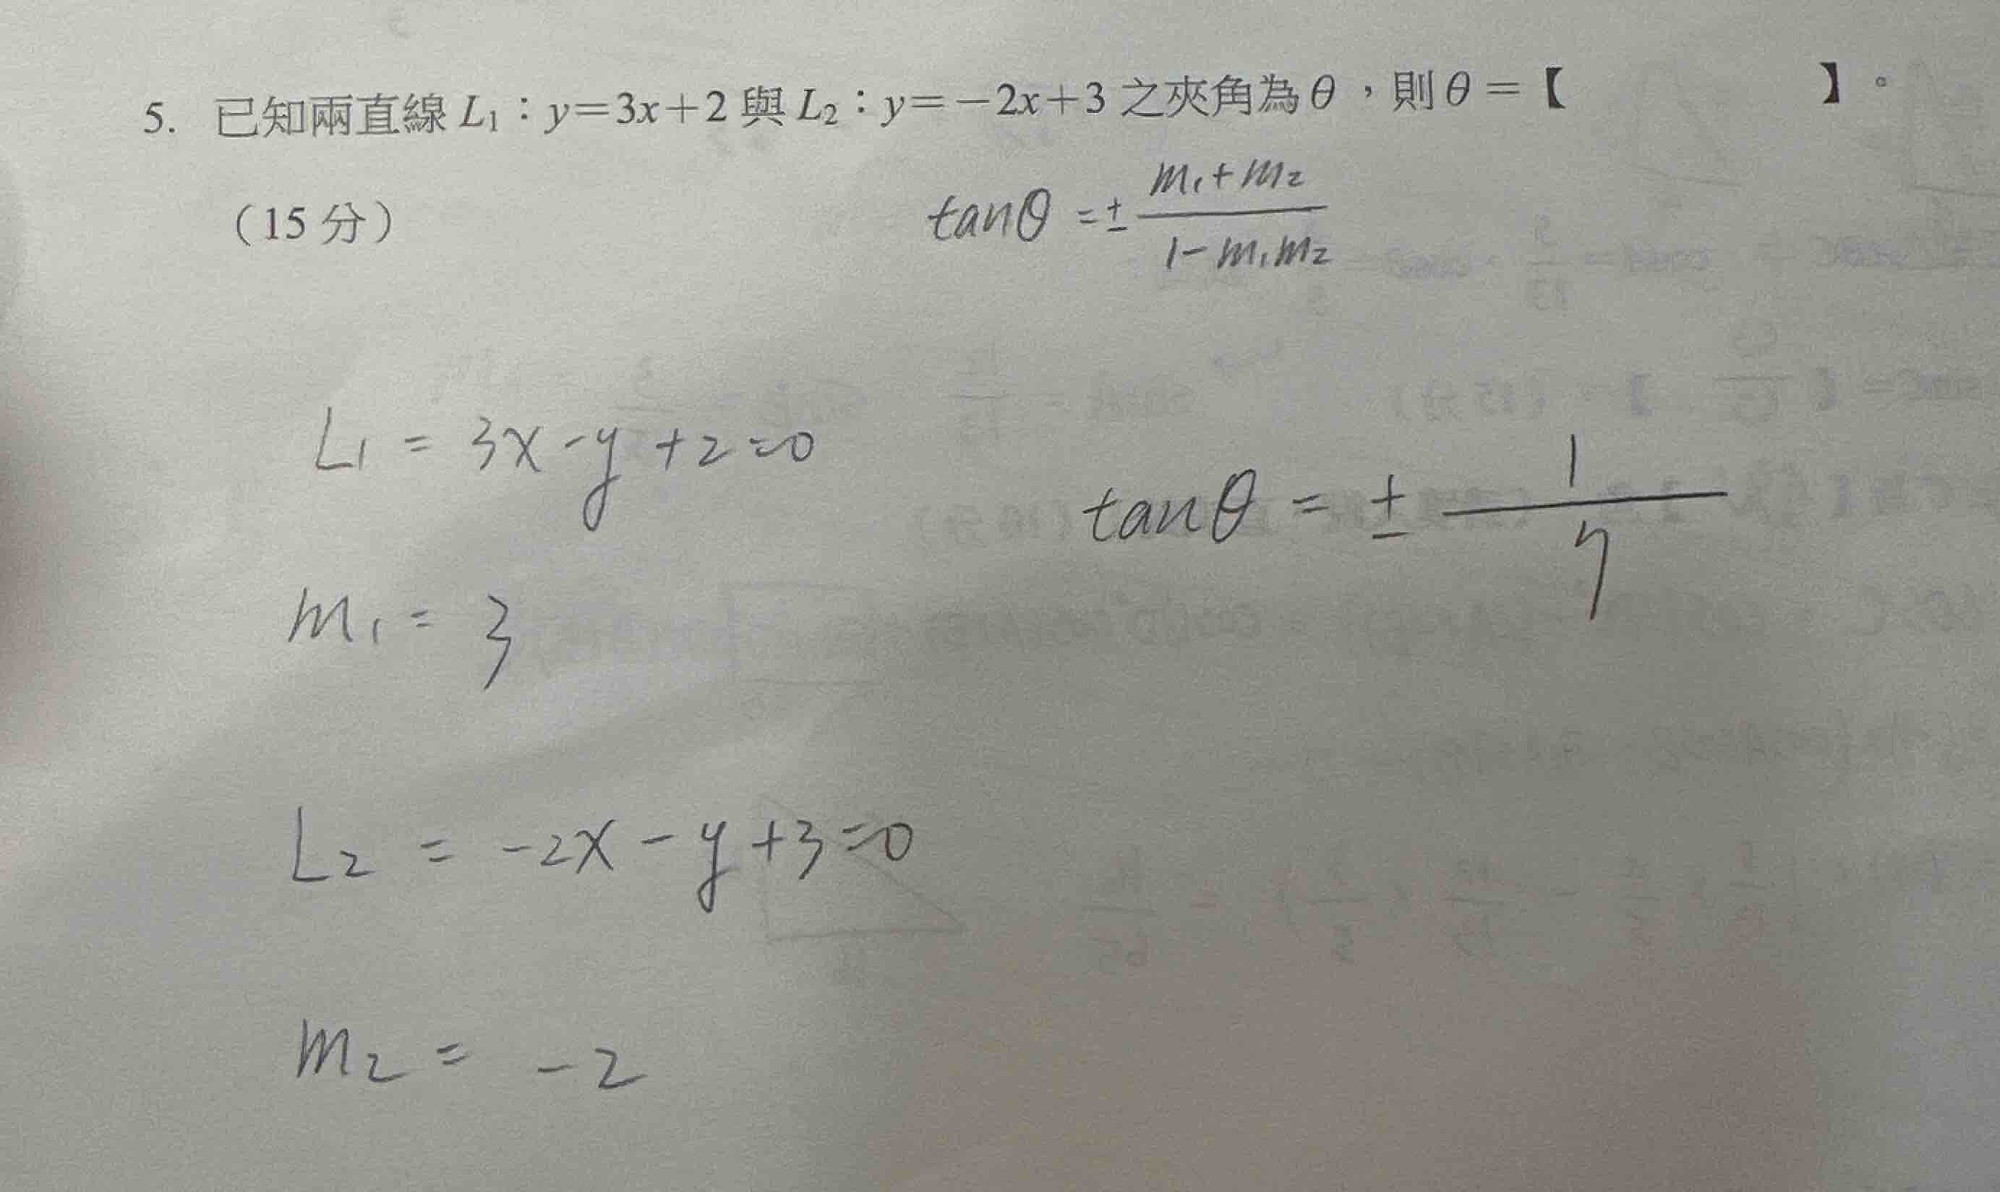 5. 已知兩直線 L₁：y=3x+2 與 L₂：y=-2x+3 之夾角為θ，則θ=【 】。
（15 分）
tanθ = ± (m₁+m₂)/(1-m₁m₂)
L₁ = 3x-y+2=0
tanθ = ± 1/7
m₁ = 3
L₂ = -2x-y+3=0
m₂ = -2